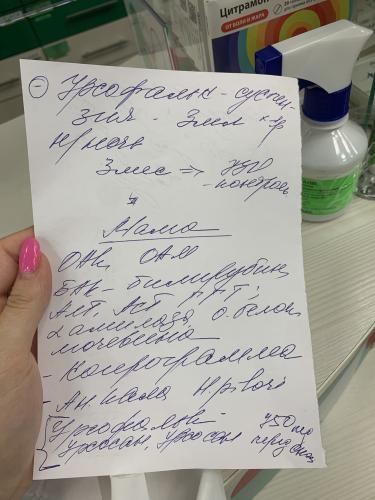 Цитрамон
ОТ БОЛИ И ЖАРА
Урсофальк - суспен
зия - 3мл х 1р
Н/ночь
3мес => УЗИ
- контроль
Мама
ОАК, ОАМ
БАК - билирубин,
АЛТ, АСТ, ГГТ,
амилаза, о.белок
мочевина
- Копрограмма
- Ан. кала H. pilori
Урсофальк 750 мг
Урсосан, Урсосан перед сном